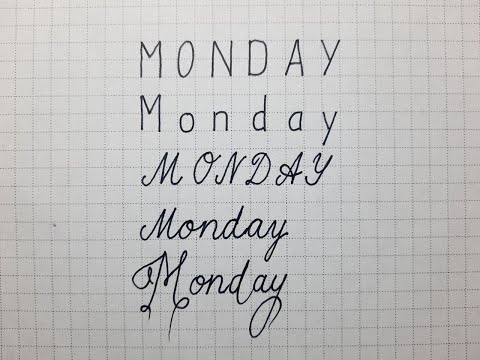 MONDAY
Monday
MONDAY
Monday
Monday